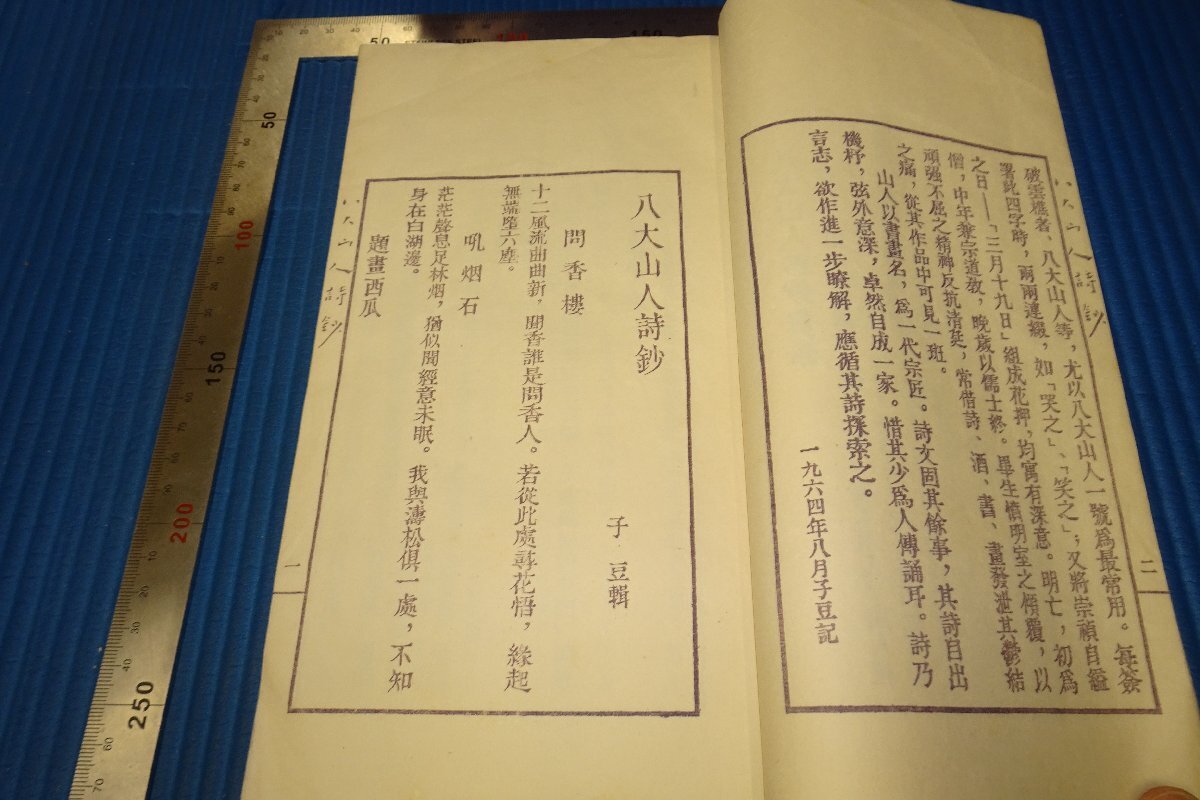 八大山人詩鈔
二
破雲樵者，八大山人等，尤以八大山人一號爲最常用。每簽
署此四字時，兩兩連綴，如「哭之」、「笑之」；又將崇禎自縊
之日——「三月十九日」組成花押，均寓有深意。明亡，初爲
僧，中年兼宗道教，晚歲以儒士終。畢生憤明室之傾覆，以
頑强不屈之精神反抗清廷，常借詩、酒、書、畫發泄其鬱結
之痛，從其作品中可見一斑。
山人以書畫名，爲一代宗匠。詩文固其餘事，其詩自出
機杼，弦外意深，卓然自成一家。惜其少爲人傳誦耳。詩乃
言志，欲作進一步瞭解，應循其詩探索之。
一九六四年八月子豆記
八大山人詩鈔
子豆輯
問香樓
十二風流曲曲新，聞香誰是問香人。若從此處尋花悟，緣起
無端墮六塵。
吼烟石
茫茫聲息足林烟，猶似聞經意未眠。我與濤松俱一處，不知
身在白湖邊。
題畫西瓜
八大山人詩鈔
一
STAINLESS STEEL
50
100
150
50
100
150
200
250